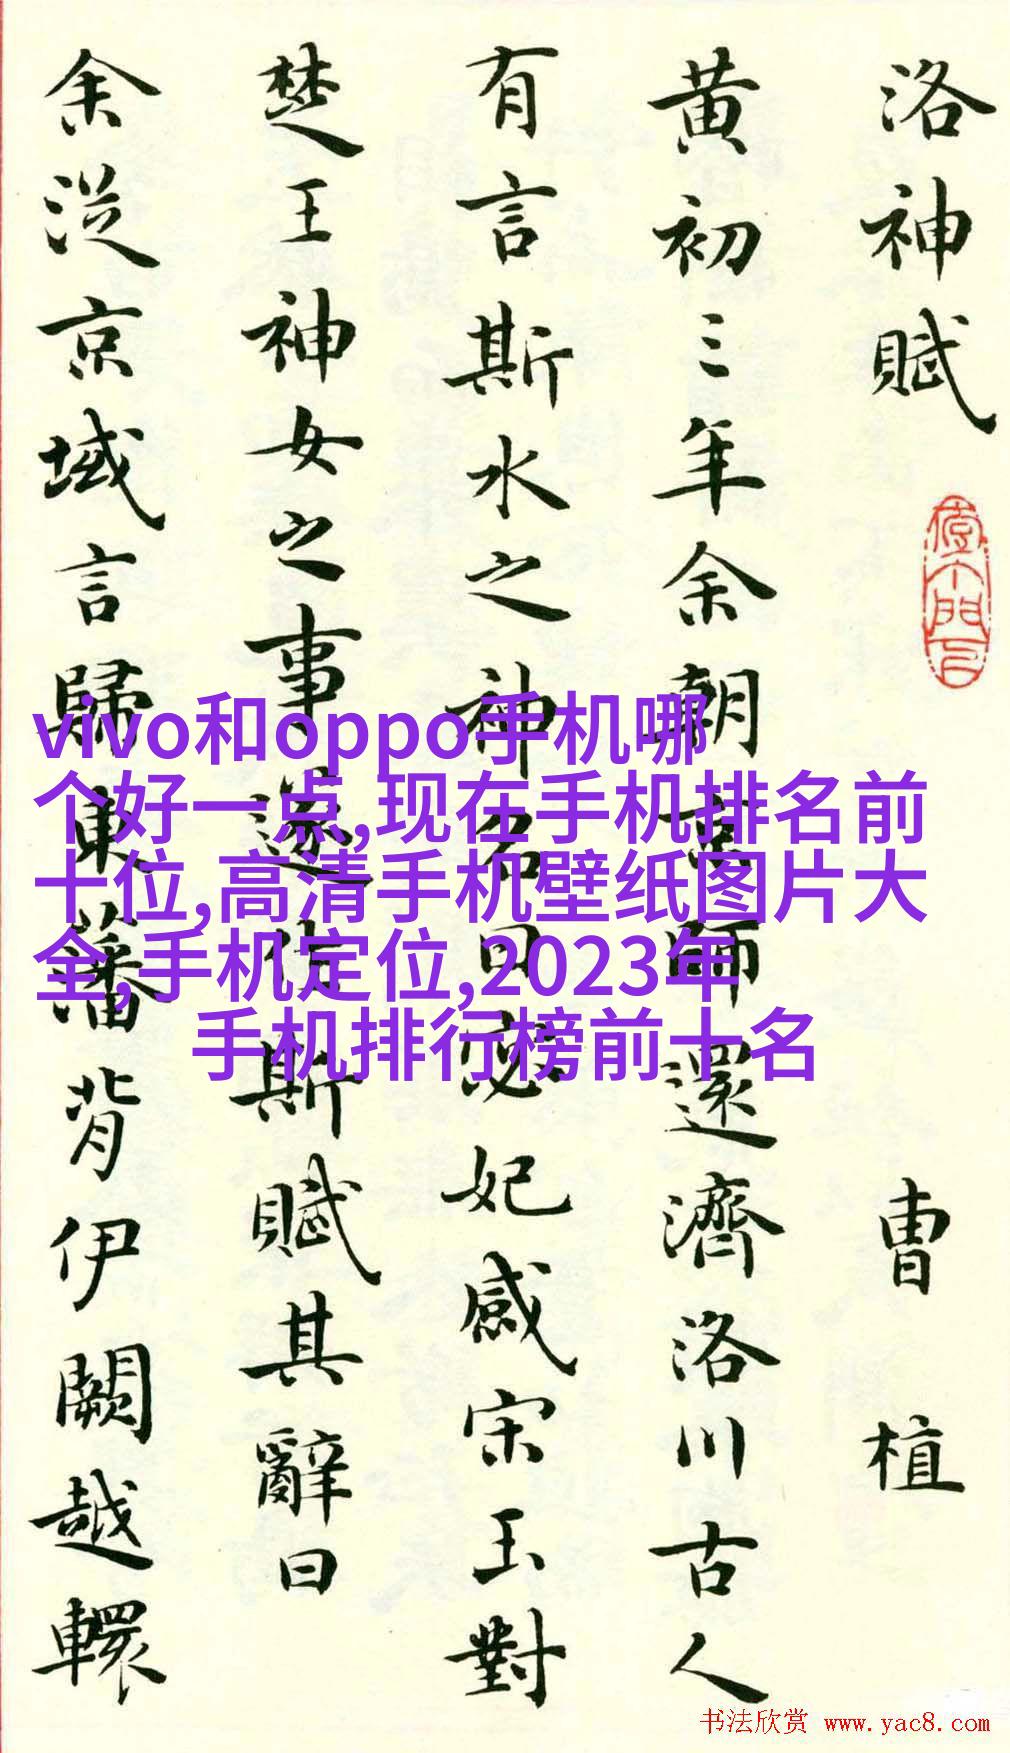 洛神賦
曹植
黄初三年余朝京師還濟洛川古人
有言斯水之神名曰宓妃感宋玉對
楚王神女之事遂作斯賦其辭曰
余従京域言歸東藩背伊闕越轘
vivo和oppo手机哪
个好一点,现在手机排名前
十位,高清手机壁纸图片大
全,手机定位,2023年
手机排行榜前十名
书法欣赏 www.yac8.com